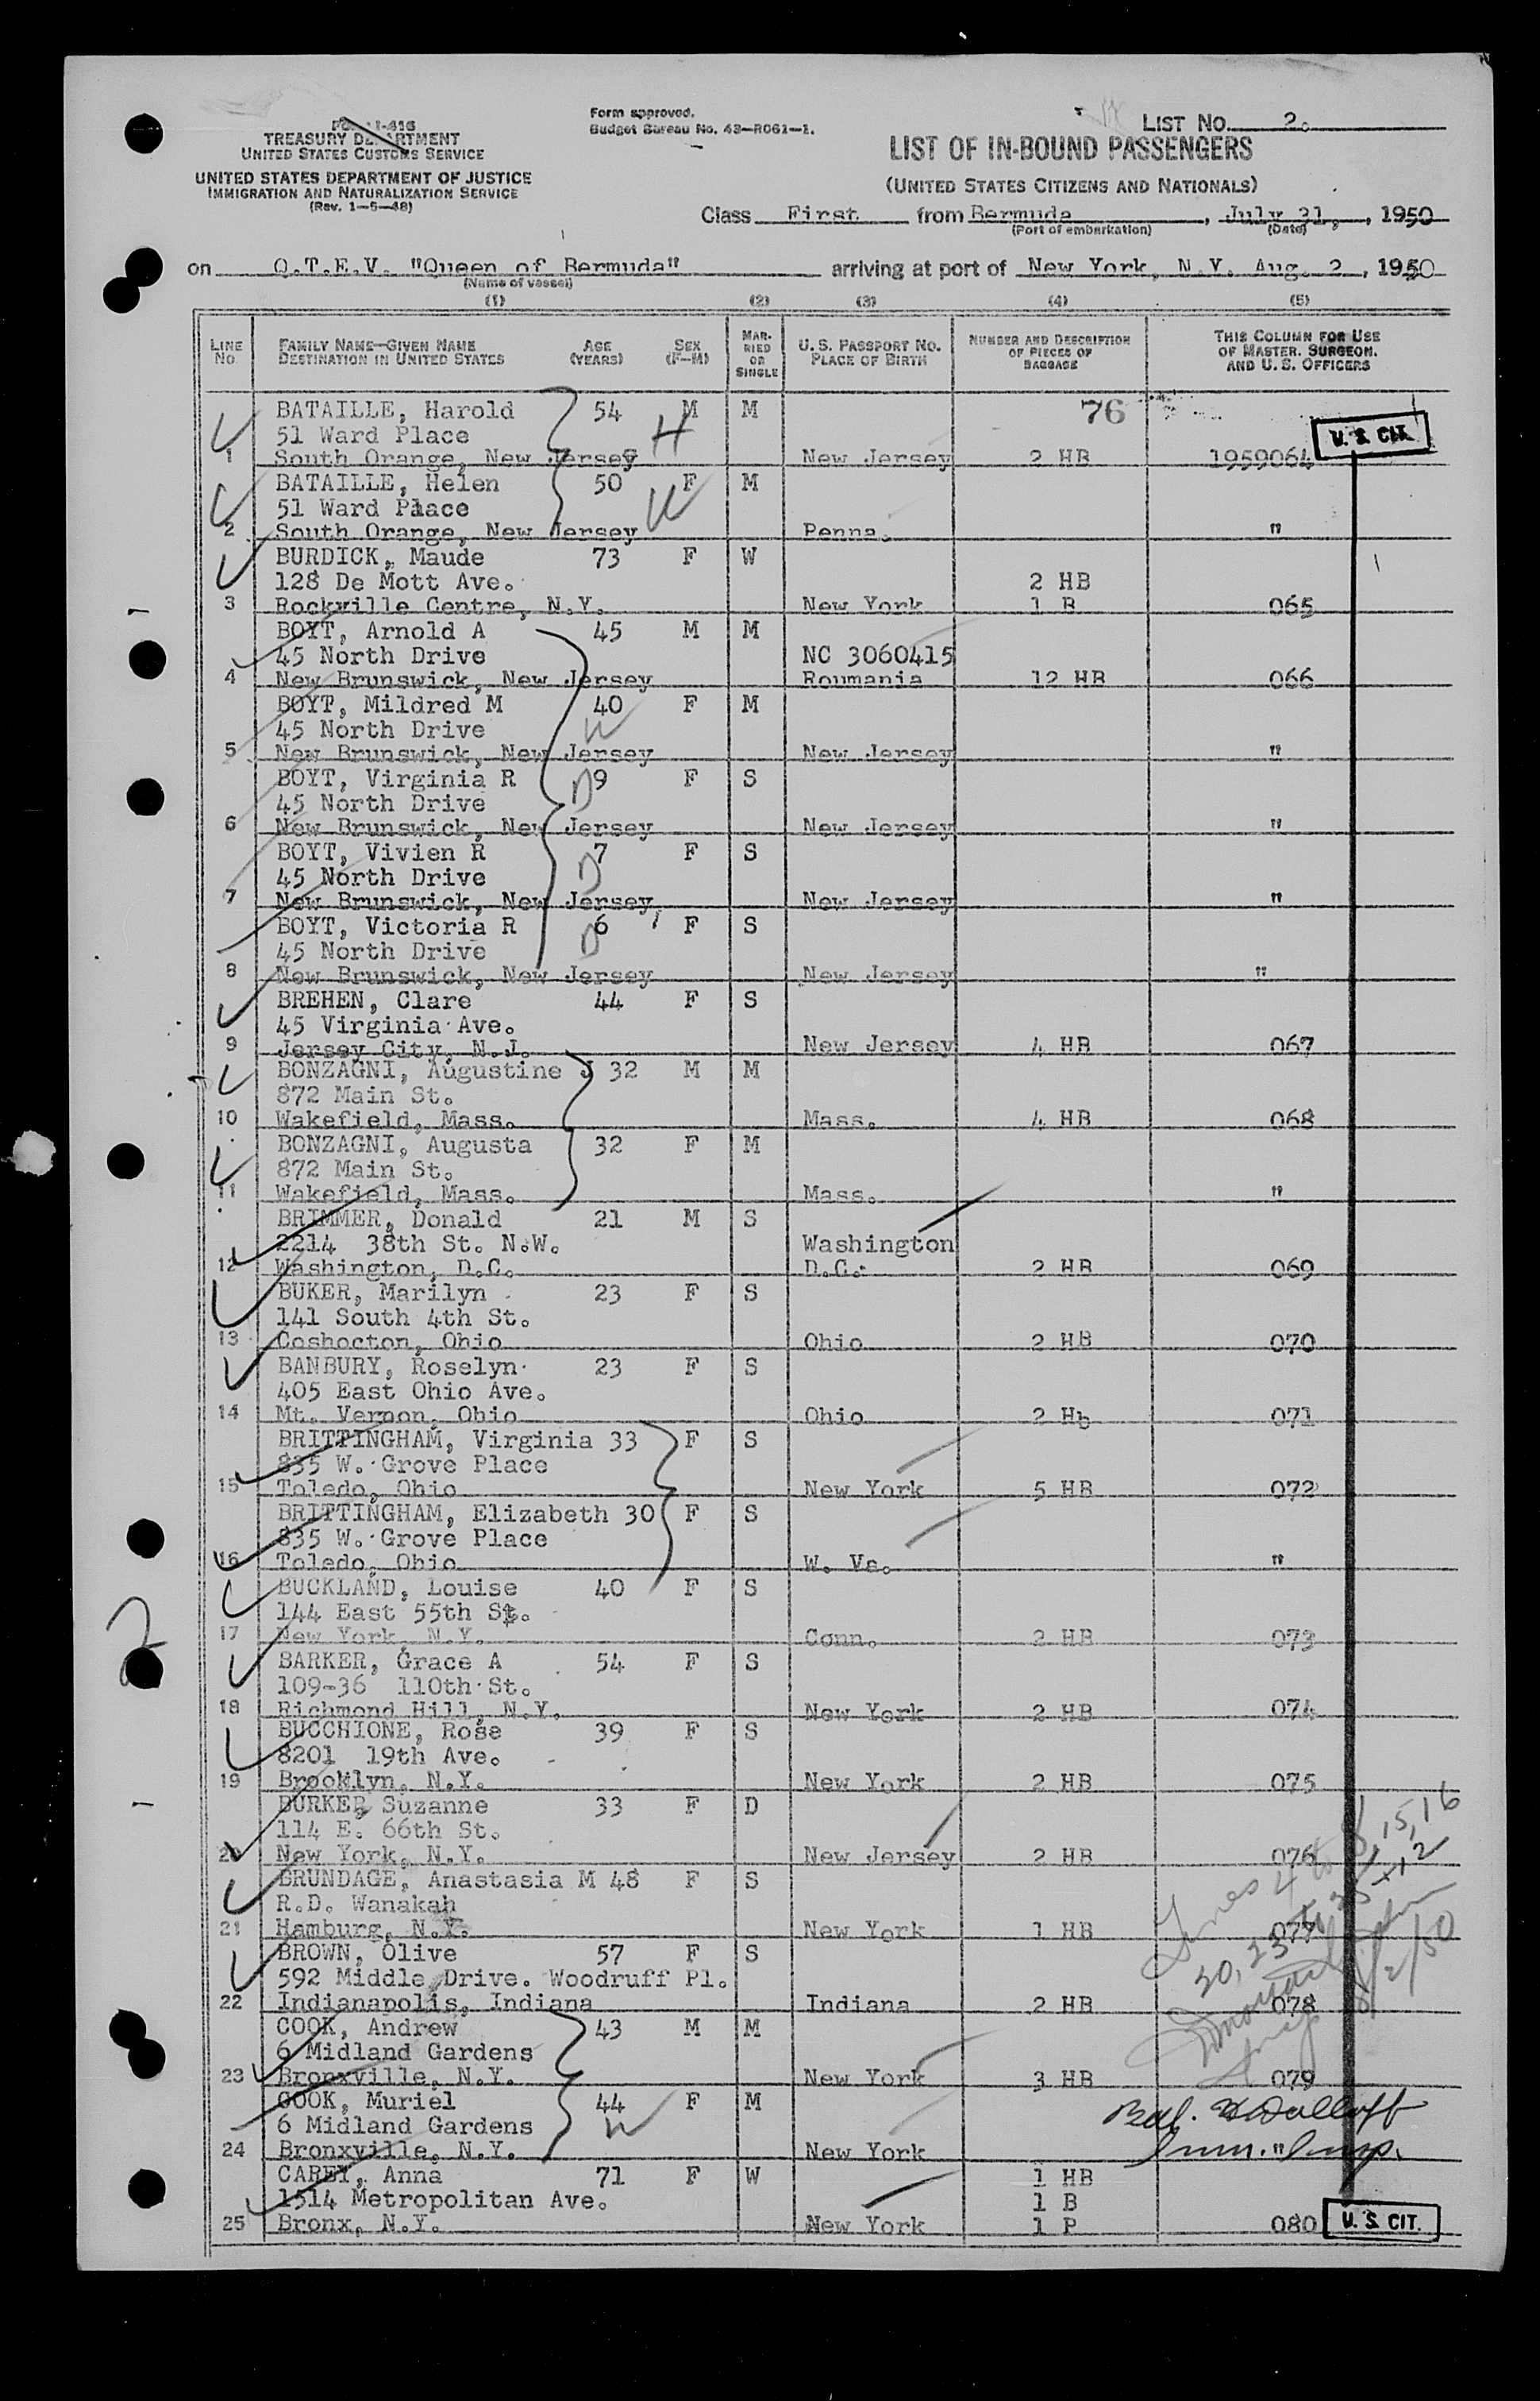 Form I-416
TREASURY DEPARTMENT
UNITED STATES CUSTOMS SERVICE
UNITED STATES DEPARTMENT OF JUSTICE
IMMIGRATION AND NATURALIZATION SERVICE
(Rev. 1-5-48)
Form approved.
Budget Bureau No. 43-R061-1.
LIST No. 2.
LIST OF IN-BOUND PASSENGERS
(UNITED STATES CITIZENS AND NATIONALS)
Class First from Bermuda, July 31, 1950
(Port of embarkation) (Date)
on Q.T.E.V. "Queen of Bermuda" arriving at port of New York, N.Y. Aug. 2, 1950
(Name of vessel)
(1) (2) (3) (4) (5)
LINE No FAMILY NAME—GIVEN NAME DESTINATION IN UNITED STATES AGE (YEARS) SEX (F—M) MARRIED OR SINGLE U. S. PASSPORT NO. PLACE OF BIRTH NUMBER AND DESCRIPTION OF PIECES OF BAGGAGE THIS COLUMN FOR USE OF MASTER, SURGEON, AND U. S. OFFICERS
BATAILLE, Harold 54 M M 76
51 Ward Place H U. S. CIT.
1 South Orange, New Jersey New Jersey 2 HB 1959064
BATAILLE, Helen 50 F M
51 Ward Place W
2 South Orange, New Jersey Penna. "
BURDICK, Maude 73 F W
128 De Mott Ave. 2 HB
3 Rockville Centre, N.Y. New York 1 B 065
BOYT, Arnold A 45 M M
45 North Drive NC 3060415
4 New Brunswick, New Jersey Roumania 12 HB 066
BOYT, Mildred M 40 F M
45 North Drive W
5 New Brunswick, New Jersey New Jersey "
BOYT, Virginia R D 9 F S
45 North Drive
6 New Brunswick, New Jersey New Jersey "
BOYT, Vivien R 7 F S
45 North Drive D
7 New Brunswick, New Jersey New Jersey "
BOYT, Victoria R 6 F S
45 North Drive D
8 New Brunswick, New Jersey New Jersey "
BREHEN, Clare 44 F S
45 Virginia Ave.
9 Jersey City, N.J. New Jersey 4 HB 067
BONZAGNI, Augustine J 32 M M
872 Main St.
10 Wakefield, Mass. Mass. 4 HB 068
BONZAGNI, Augusta 32 F M
872 Main St.
11 Wakefield, Mass. Mass. "
BRIMMER, Donald 21 M S
2214 38th St. N.W. Washington
12 Washington, D.C. D.C. 2 HB 069
BUKER, Marilyn 23 F S
141 South 4th St.
13 Coshocton, Ohio Ohio 2 HB 070
BANBURY, Roselyn 23 F S
405 East Ohio Ave.
14 Mt. Vernon, Ohio Ohio 2 Hb 071
BRITTINGHAM, Virginia 33 F S
835 W. Grove Place
15 Toledo, Ohio New York 5 HB 072
BRITTINGHAM, Elizabeth 30 F S
835 W. Grove Place
16 Toledo, Ohio W. Va. "
BUCKLAND, Louise 40 F S
144 East 55th St.
17 New York, N.Y. Conn. 2 HB 073
2
BARKER, Grace A 54 F S
109-36 110th St.
18 Richmond Hill, N.Y. New York 2 HB 074
BUCCHIONE, Rose 39 F S
8201 19th Ave.
19 Brooklyn, N.Y. New York 2 HB 075
BURKE, Suzanne 33 F D
114 E. 66th St.
20 New York, N.Y. New Jersey 2 HB 076
BRUNDAGE, Anastasia M 48 F S
R.D. Wanakah
21 Hamburg, N.Y. New York 1 HB 077
BROWN, Olive 57 F S
592 Middle Drive. Woodruff Pl.
22 Indianapolis, Indiana Indiana 2 HB 078
COOK, Andrew 43 M M
6 Midland Gardens
23 Bronxville, N.Y. New York 3 HB 079
COOK, Muriel 44 F M
6 Midland Gardens W
24 Bronxville, N.Y. New York "
CAREY, Anna 71 F W 1 HB
1514 Metropolitan Ave. 1 B
25 Bronx, N.Y. New York 1 P 080 U. S. CIT.
Lines 4 to 8, 15, 16
20, 23 to 25 + 12
8/2/50
Imm. Insp.